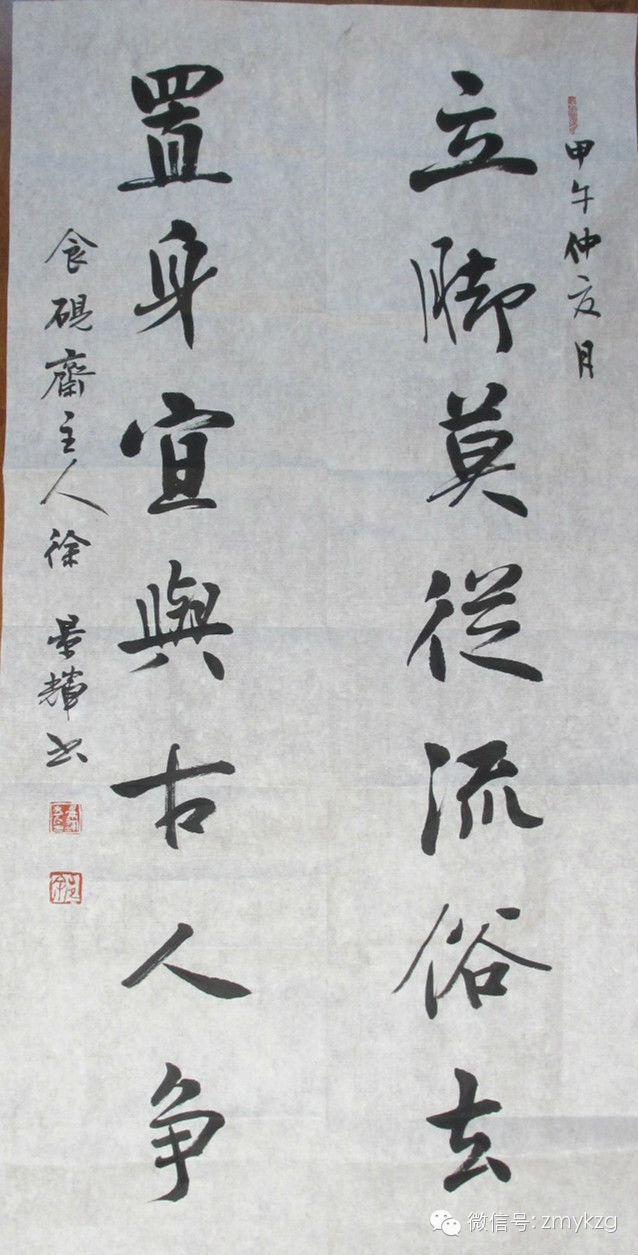 甲午仲夏月
立脚莫從流俗去
置身宜與古人争
食硯齋主人徐景輝书
微信号: zmykzg